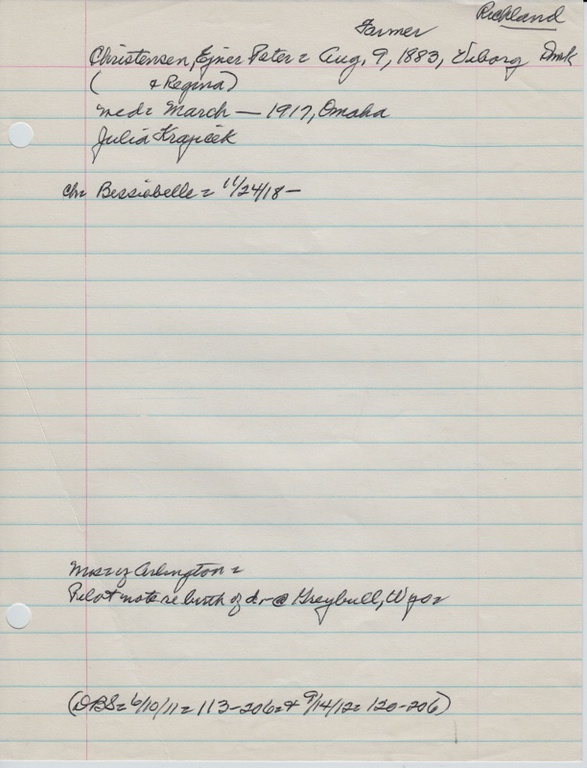 Richland
Farmer
Christensen, Ejner Peter = Aug. 9, 1883, Viborg Dmk
( & Regina)
med = March — 1917, Omaha
Julia Krajicek
Ch = Bessiabelle = 11/24/18 —
Arlington =
Pilot note re birth of dr @ Greybull, Wyo =
(DBS = 6/10/11 = 113-206 = & 9/14/12 = 120-206)